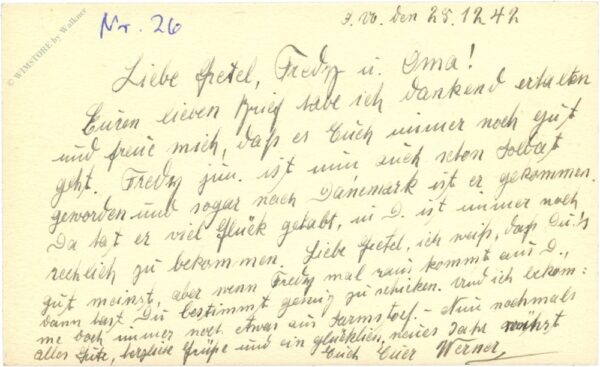 © WIMSTORE by Walkner
Nr. 26
J. Vo. den 28.12.42
Liebe Gretel, Fredy u. Oma!
Euren lieben Brief habe ich dankend erhalten
und freue mich, daß es Euch immer noch gut
geht. Fredy jun. ist nun auch schon Soldat
geworden und sogar nach Dänemark ist er gekommen.
Da hat er viel Glück gehabt, in D. ist immer noch
rechlich zu bekommen. Liebe Gretel, ich weiß, daß Du's
gut meinst, aber wenn Fredy mal raus kommt aus D.,
dann hast Du bestimmt genug zu schicken. Und ich bekom:
me doch immer noch etwas aus - Nun nochmals
alles Gute, herzliche Grüße und ein glückliches, neues Jahr wünscht
Euch Euer Werner